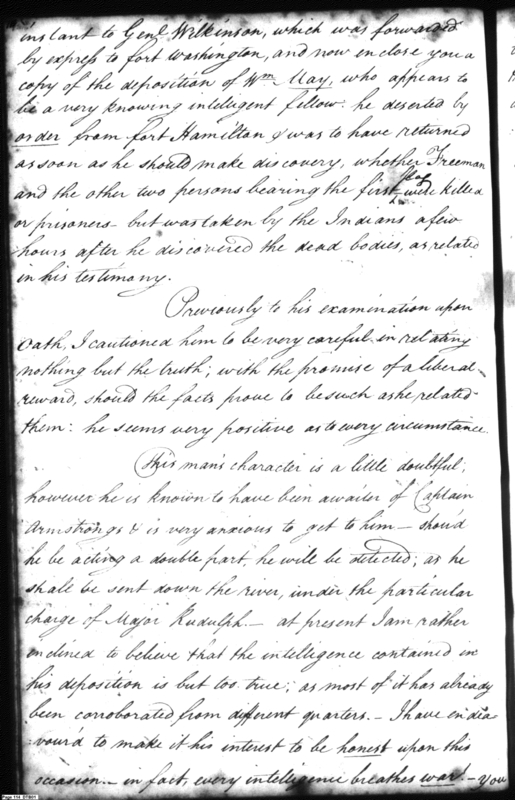 instant to Genl. Wilkinson, which was forwarded
by express to fort Washington, and now enclose you a
copy of the deposition of Wm. May, who appears to
be a very knowing intelligent fellow. he deserted by
order from fort Hamilton & was to have returned
as soon as he should make discovery, whether Freeman
and the other two persons bearing the first flag were killed
or prisoners - but was taken by the Indians a few
hours after he discovered the dead bodies, as related
in his testimony.
Previously to his examination upon
Oath, I cautioned him to be very careful in relating
nothing but the truth; with the promise of a liberal
reward, should the facts prove to be such as he related
them: he seems very positive as to every circumstance.
This man's character is a little doubtful;
however he is known to have been a waiter of Captain
Armstrongs & is very anxious to get to him - shou'd
he be acting a double part, he will be detected; as he
shall be sent down the river, under the particular
charge of Major Rudulph. - at present I am rather
enclined to believe that the intelligence contained in
his deposition is but too true; as most of it has already
been corroborated from different quarters. - I have endea
vour'd to make it his interest to be honest upon this
occasion. - in fact, every intelligence breathes war! - You
Page 114